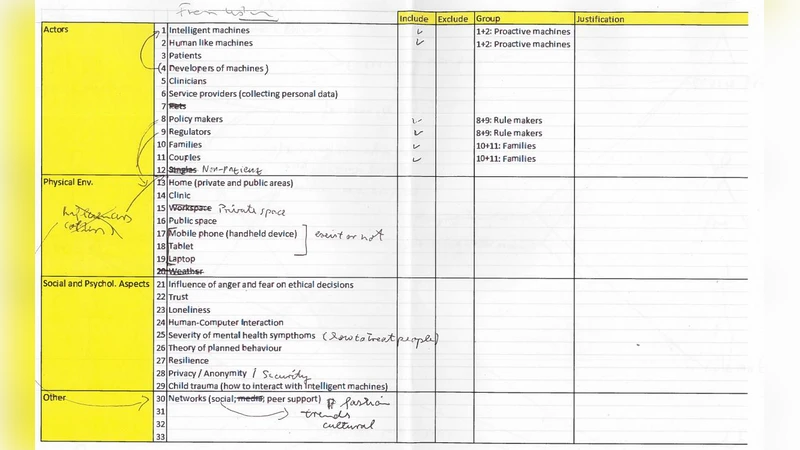 From
Include Exclude Group Justification
Actors
1 Intelligent machines ✓ 1+2: Proactive machines
2 Human like machines ✓ 1+2: Proactive machines
3 Patients
(4 Developers of machines)
5 Clinicians
6 Service providers (collecting personal data)
7 Pets
8 Policy makers ✓ 8+9: Rule makers
9 Regulators ✓ 8+9: Rule makers
10 Families ✓ 10+11: Families
11 Couples ✓ 10+11: Families
12 Singles Non-patients
Physical Env.
13 Home (private and public areas)
14 Clinic
15 Workspace Private space
16 Public space
17 Mobile phone (handheld device)
18 Tablet exist or not
19 Laptop
20 Weather
Social and Psychol. Aspects
21 Influence of anger and fear on ethical decisions
22 Trust
23 Loneliness
24 Human-Computer Interaction
25 Severity of mental health sympthoms (how to treat people)
26 Theory of planned behaviour
27 Resilience
28 Privacy / Anonymity / Security
29 Child trauma (how to interact with intelligent machines)
Other
30 Networks (social, media, peer support) # fashion
31 trends
32 cultural
33